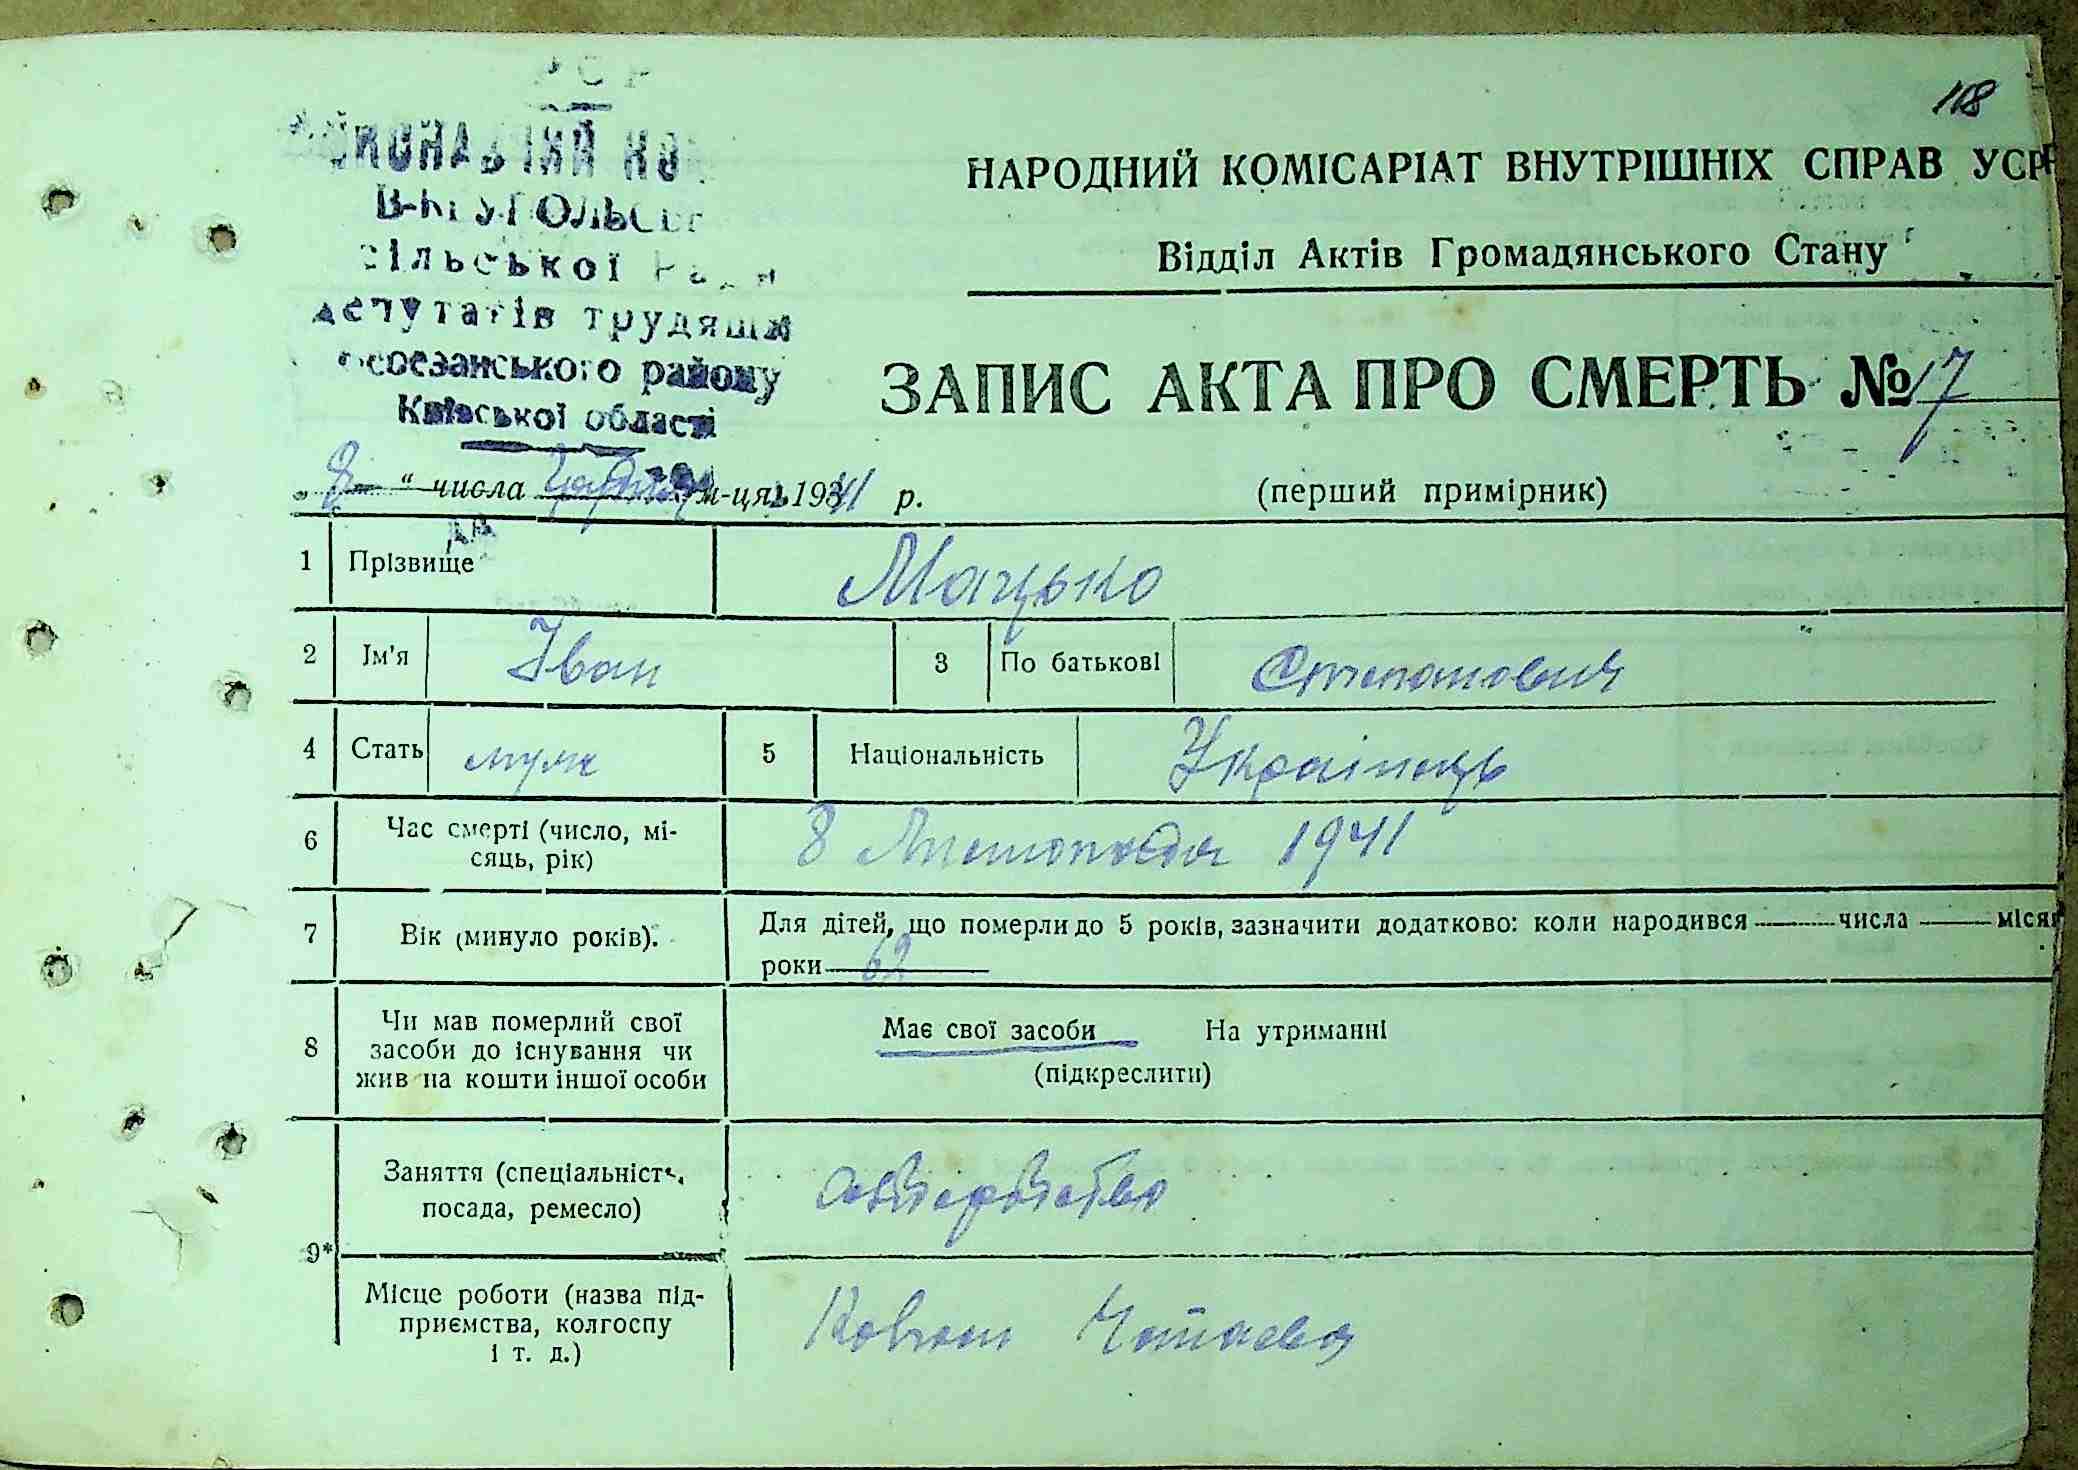 118
РСР
ВИКОНАВЧИЙ КО
В-КРУПОЛЬСЬ
сільської Ради
депутатів трудящи
Березанського району
Київської області
НАРОДНИЙ КОМІСАРІАТ ВНУТРІШНІХ СПРАВ УСРР
Відділ Актів Громадянського Стану
ЗАПИС АКТА ПРО СМЕРТЬ № 17
„ 8 “ числа грудня м-ця 1941 р.
(перший примірник)
1 Прізвище Мацько
2 Ім'я Іван 3 По батькові Степанович
4 Стать муж 5 Національність Українець
6 Час смерті (число, мі-
сяць, рік) 8 Листопада 1941
7 Вік (минуло років). Для дітей, що померли до 5 років, зазначити додатково: коли народився числа місяц
роки 62
8 Чи мав померлий свої
засоби до існування чи
жив на кошти іншої особи
Має свої засоби На утриманні
(підкреслити)
9* Заняття (спеціальність,
посада, ремесло)
Місце роботи (назва під-
приємства, колгоспу
і т. д.)
Колгосп Чапаєва